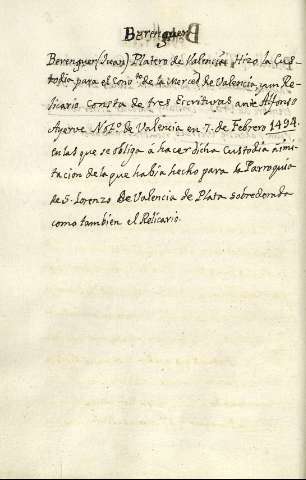 Berenguer
Berenguer (Juan) Platero de Valencia: Hizo la Cus-
todia para el Convto. de la Merced de Valencia, y un Re-
licario. Consta de tres Escrituras ante Alfonso
Ayerve Noto. de Valencia en 7. de Febrero 1494.
en las que se obliga á hacer dicha Custodia á imi-
tacion de la que habia hecho para la Parroquia
de S. Lorenzo de Valencia de Plata sobredorada
como tambien el Relicario.